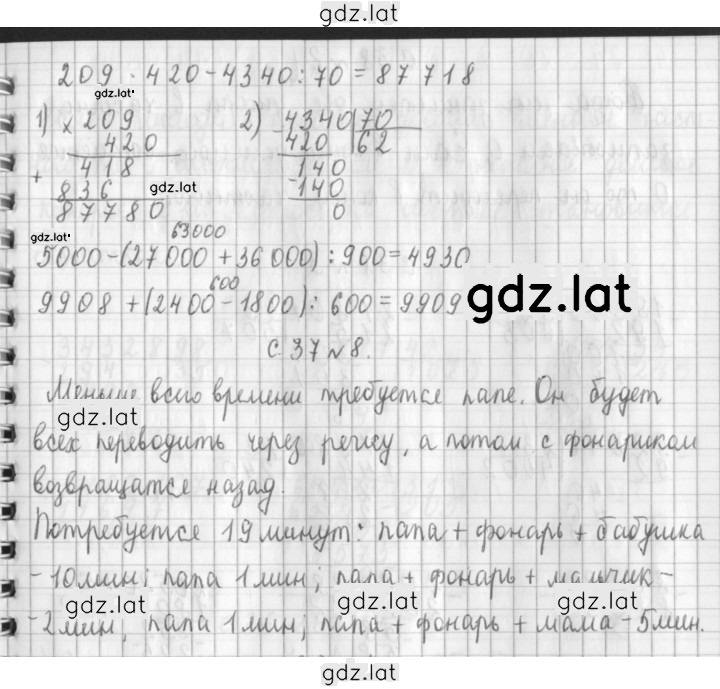 gdz.lat
209 · 420 - 4340 : 70 = 87718
gdz.lat
1) × 209 2) 4340 | 70
420 420 | 62
+ 418 140
836 gdz.lat -140
87780 0
gdz.lat 63000
5000 - (27000 + 36000) : 900 = 4930
600
9908 + (2400 - 1800) : 600 = 9909 gdz.lat
с. 37 № 8.
Меньше всего времени требуется папе. Он будет
gdz.lat
всех переводить через реку, а потом с фонариком
возвращатся назад.
Потребуется 19 минут: папа + фонарь + бабушка
- 10 мин; папа 1 мин; папа + фонарь + мальчик -
gdz.lat gdz.lat gdz.lat
- 2 мин; папа 1 мин; папа + фонарь + мама - 5 мин.
gdz.lat